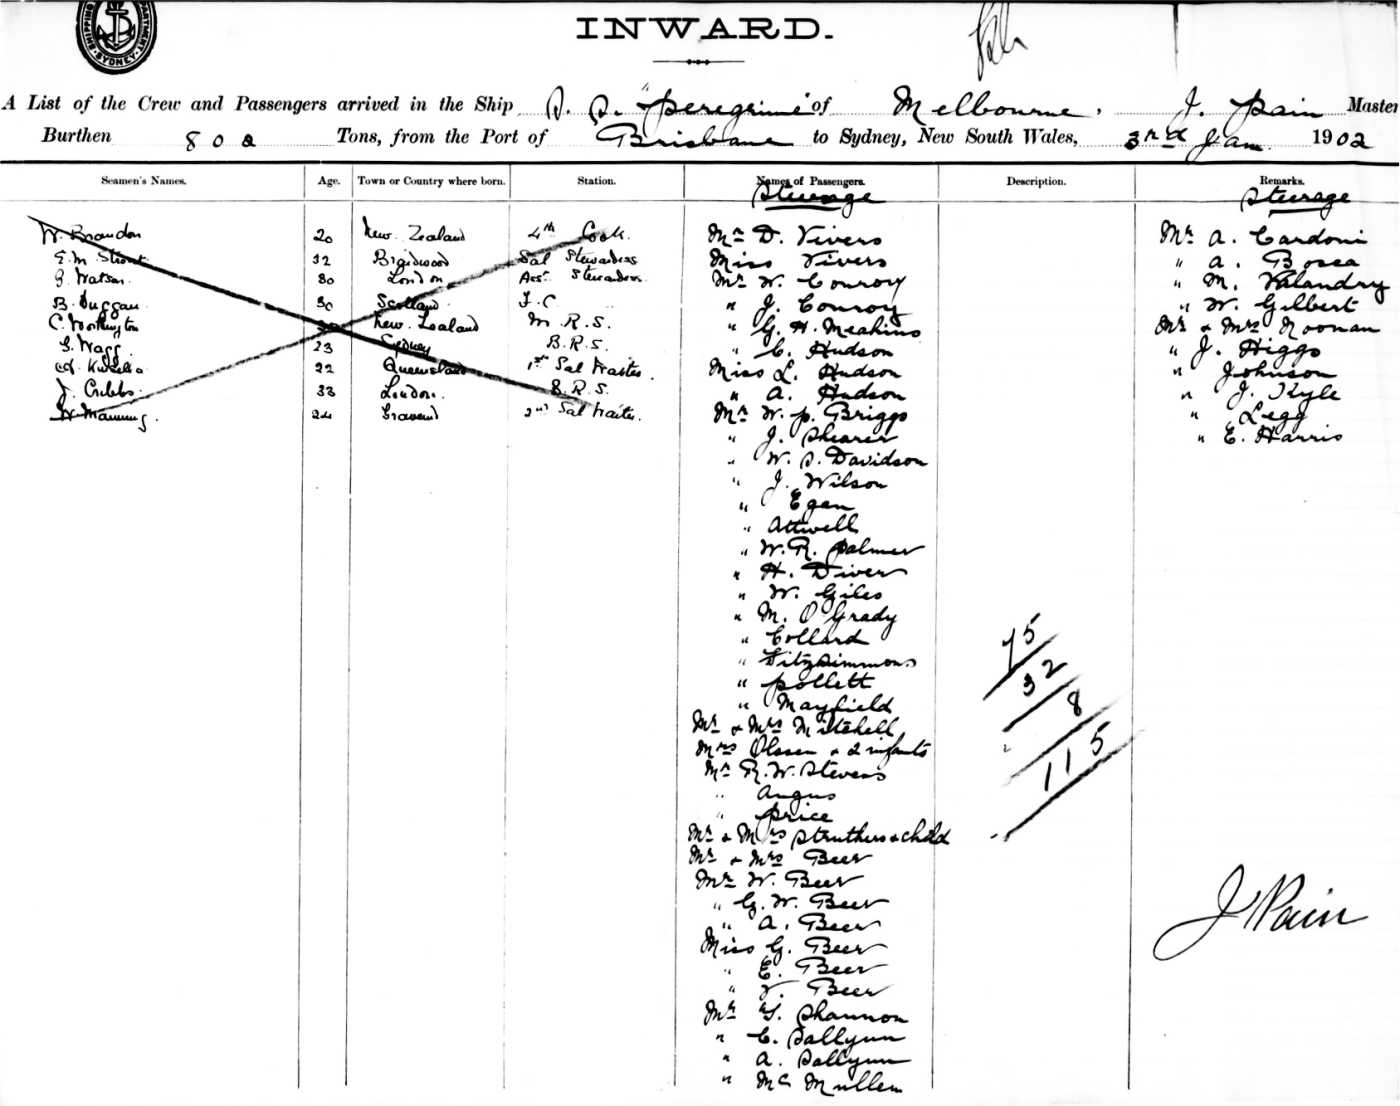 SHIPPING DEPARTMENT. SYDNEY
INWARD.
A List of the Crew and Passengers arrived in the Ship S. S. "Peregrine" of Melbourne, J. Pain Master
Burthen 802 Tons, from the Port of Brisbane to Sydney, New South Wales, 3rd Jan 1902
Seamen's Names. Age. Town or Country where born. Station. Names of Passengers. Description. Remarks.
Steerage Steerage
W. Brandon 20 New Zealand 4th Cook
E. M. Stroud 32 Braidwood Sal Stewardess
G. Watson 30 London Asst Stewardess
B. Duggan 30 Scotland F. C
C. Worthington New Zealand M. R. S.
G. Wagg 23 Sydney B. R. S.
22 Queensland 1st Sal Waiter
J. Cribbs 33 London B. R. S.
H. Manning 24 Gravesend 2nd Sal Waiter
Mr D. Vivers
Miss Vivers
Mr W. Conroy
" J. Conroy
" G. H. Meakins
" C. Hudson
Miss L. Hudson
" A. Hudson
Mr W. P. Briggs
" J. Shearer
" W. S. Davidson
" J. Wilson
" Egan
" Attwell
" W. R. Palmer
" H. Diver
" W. Giles
" M. O'Grady
" Collard
" Fitzsimmons
" Pollett
" Mayfield
Mr & Mrs Mitchell
Mrs Olssen & 2 infants
Mr R. W. Stevens
" Angus
" Price
Mr & Mrs Struthers & child
Mr & Mrs Beer
Mr W. Beer
" G. W. Beer
" A. Beer
Miss G. Beer
" E. Beer
" V. Beer
Mr G. Shannon
" C. Sallyun
" A. Sallyun
" Mc Mullen
75
32
8
115
Mr A. Cardoni
" A. Bosca
" M. Valandry
" W. Gilbert
Mr & Mrs Noonan
" J. Higgs
" Johnson
" J. Kyle
" Legg
" E. Harris
J Pain